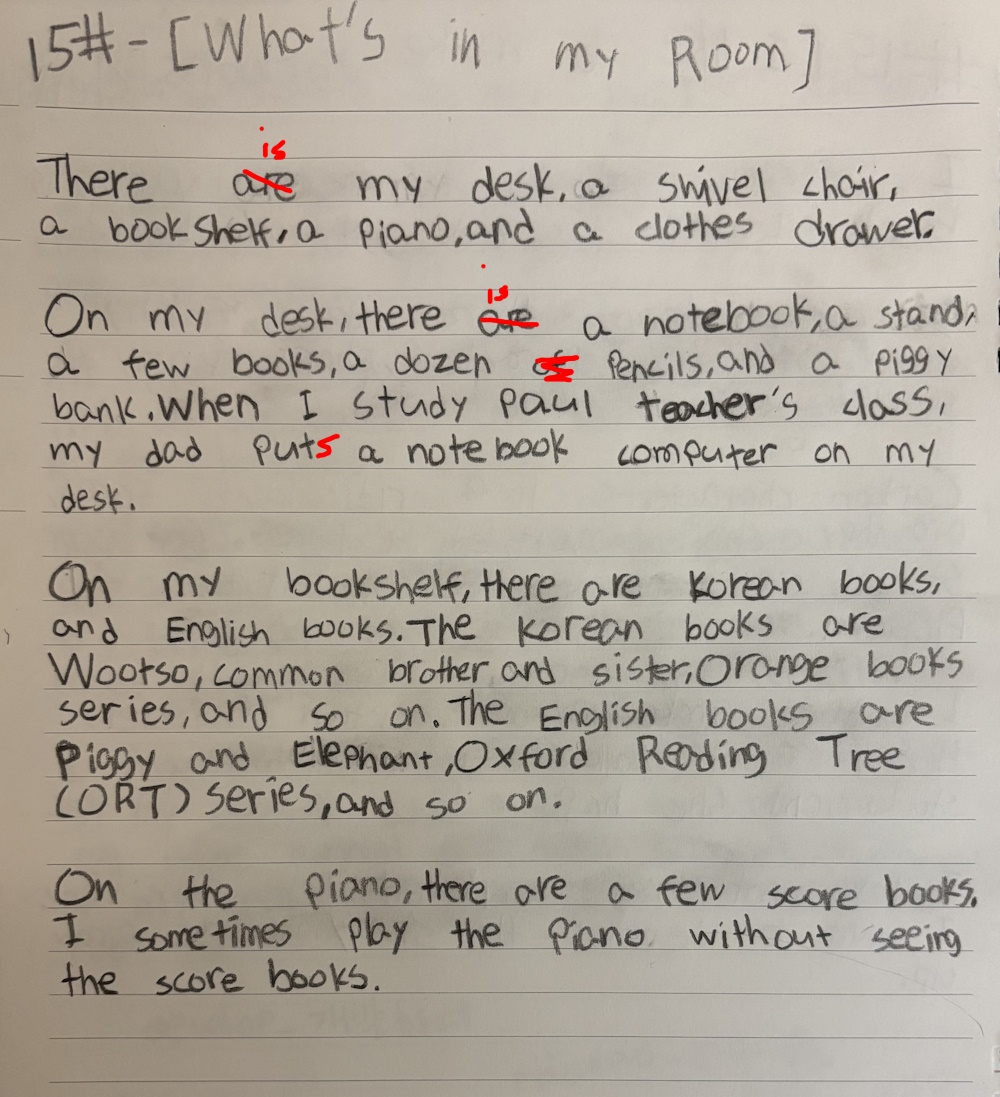 15#-[What's in my Room]
is
There are my desk, a shivel chair,
a bookshelf, a piano, and a clothes drawer.
is
On my desk, there are a notebook, a stand,
a few books, a dozen of pencils, and a piggy
bank. When I study paul teacher's class,
my dad puts a notebook computer on my
desk.
On my bookshelf, there are Korean books,
and English books. The Korean books are
Wootso, common brother and sister, Orange books
series, and so on. The English books are
Piggy and Elephant, Oxford Reading Tree
(ORT) series, and so on.
On the piano, there are a few score books.
I sometimes play the piano without seeing
the score books.